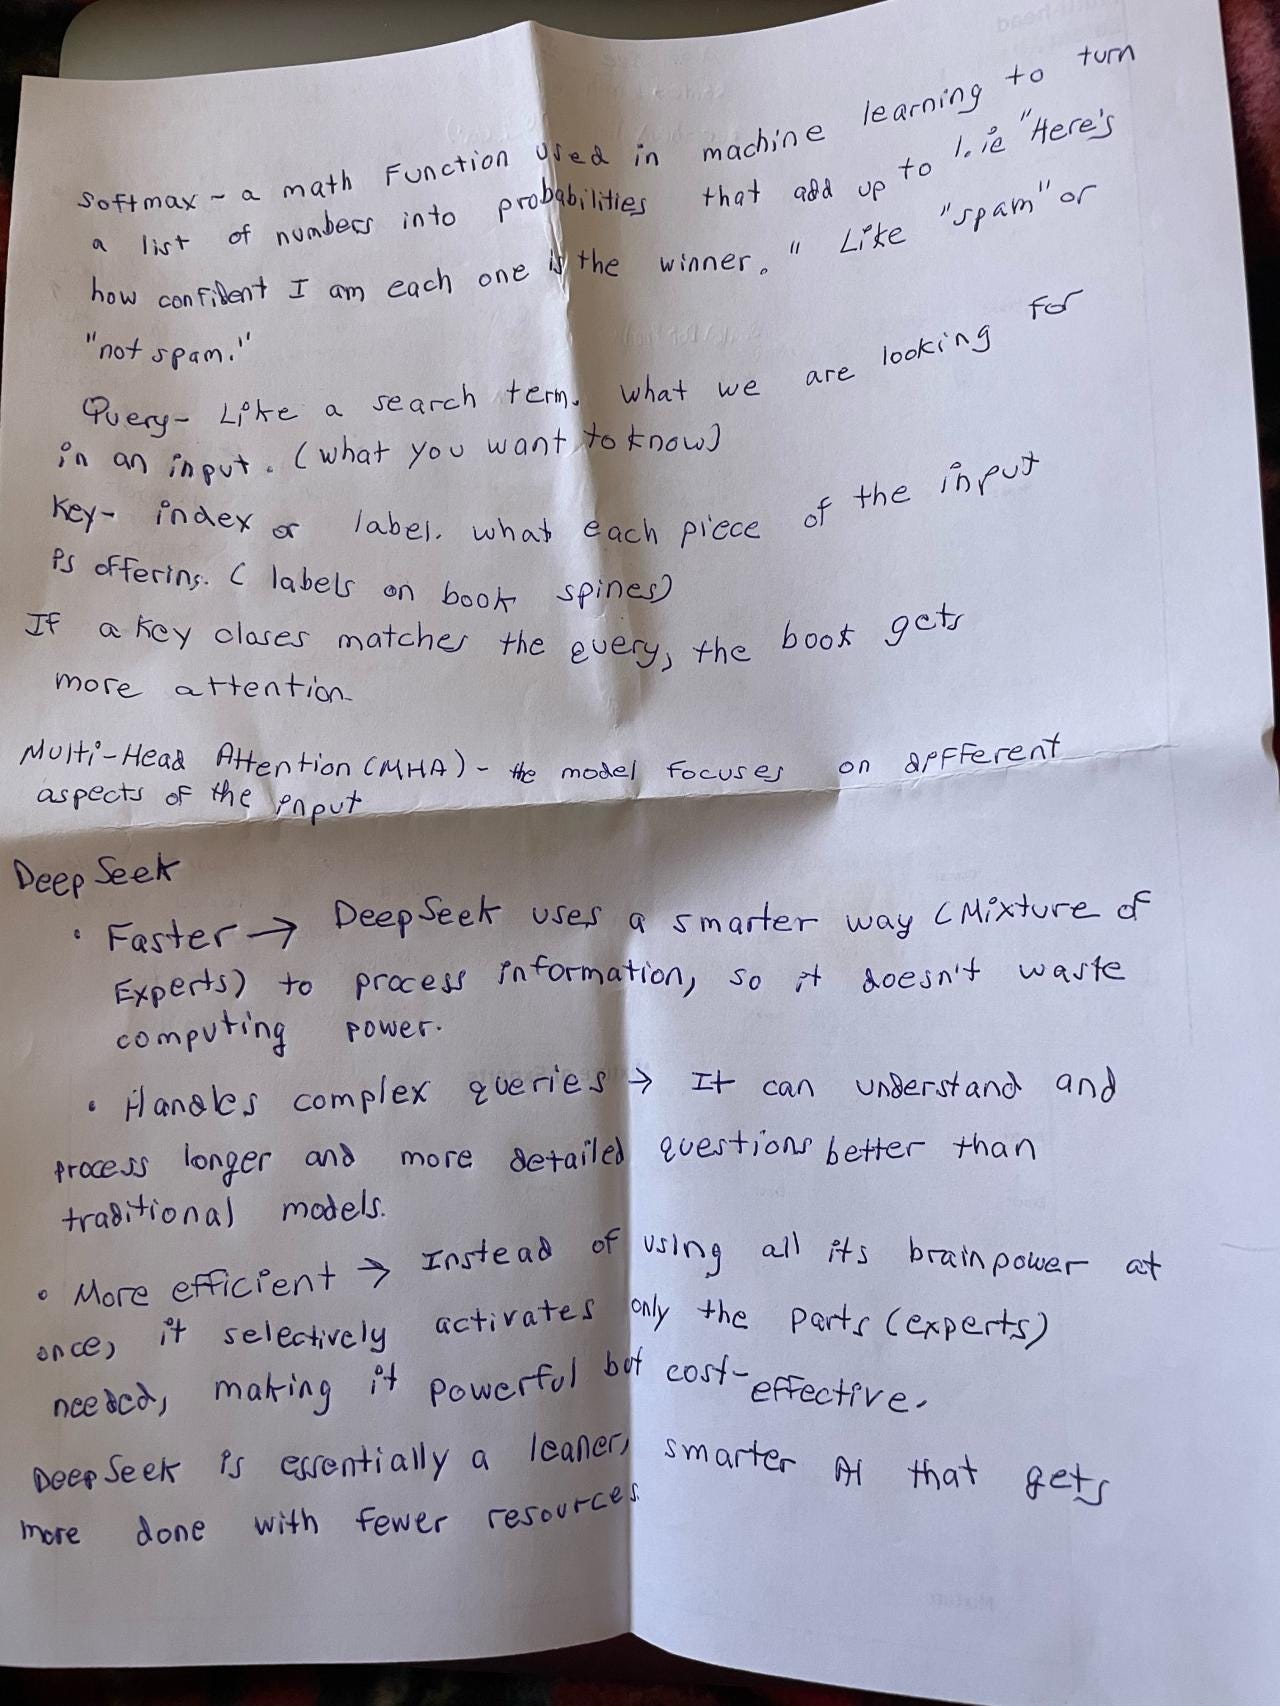 Softmax - a math Function used in machine learning to turn
a list of numbers into probabilities that add up to 1. ie "Here's
how confident I am each one is the winner." Like "spam" or
"not spam."
Query - Like a search term. what we are looking for
in an input. (what you want to know)
Key - index or label. what each piece of the input
is offering. (labels on book spines)
If a key closes matches the query, the book gets
more attention.
Multi-Head Attention (MHA) - the model focuses on different
aspects of the input
DeepSeek
• Faster → DeepSeek uses a smarter way (Mixture of
Experts) to process information, so it doesn't waste
computing power.
• Handles complex queries → It can understand and
process longer and more detailed questions better than
traditional models.
• More efficient → Instead of using all its brainpower at
once, it selectively activates only the parts (experts)
needed, making it powerful but cost-effective.
DeepSeek is essentially a leaner, smarter AI that gets
more done with fewer resources